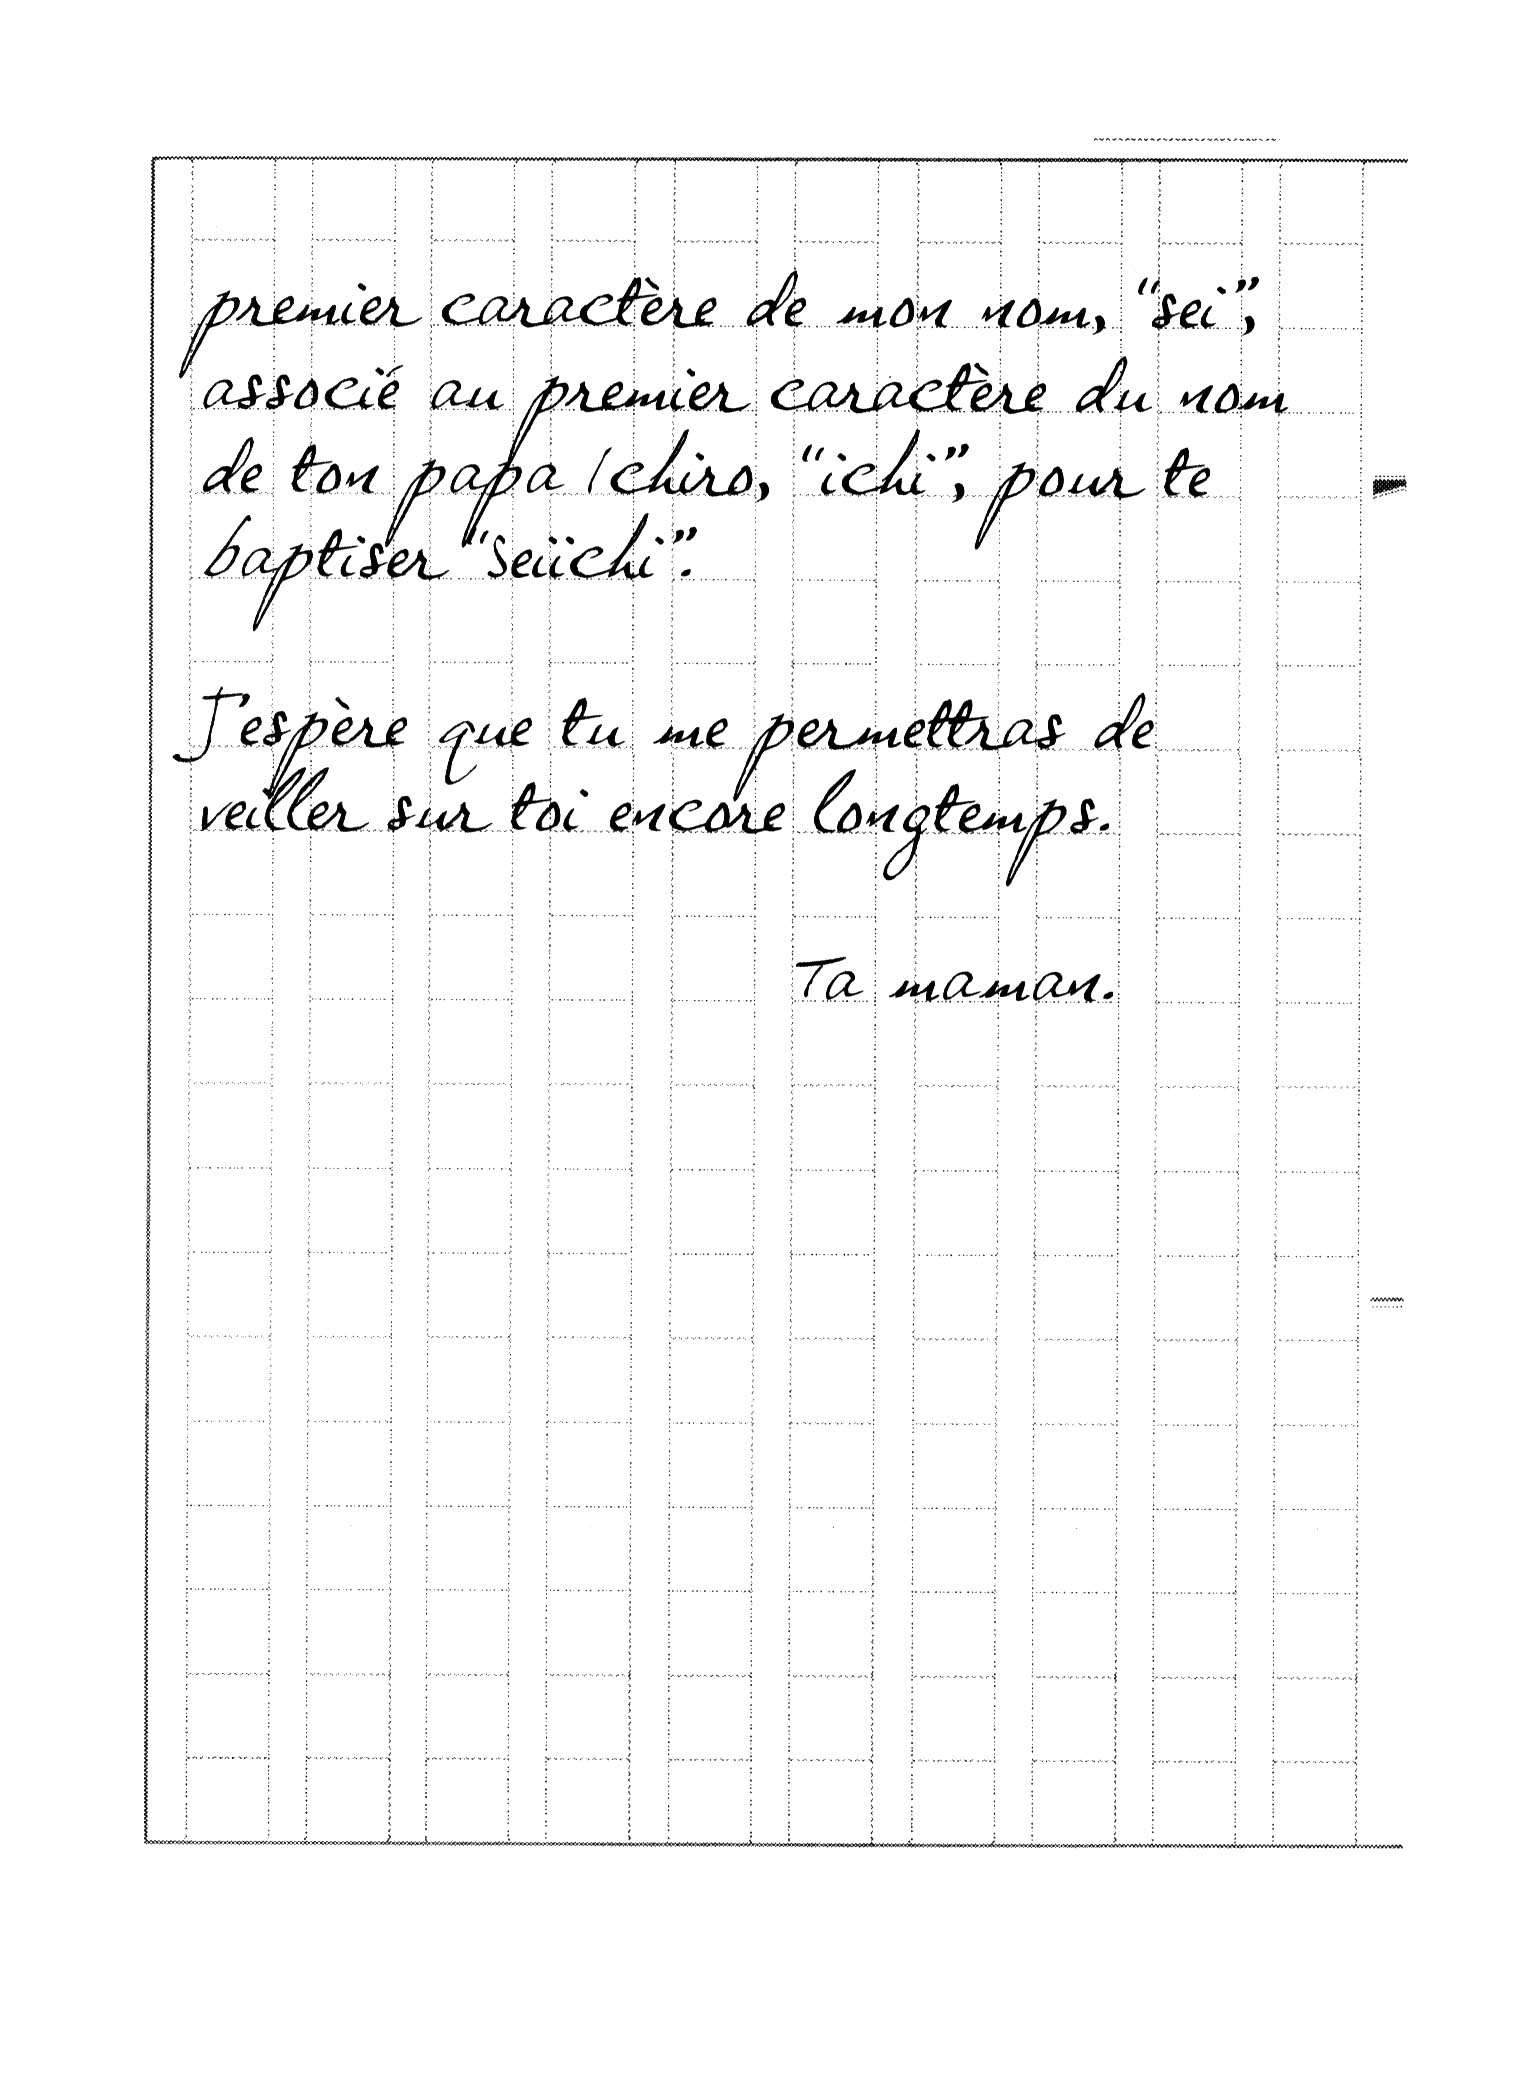 premier caractère de mon nom, “sei”,
associé au premier caractère du nom
de ton papa Ichiro, “ichi”, pour te
baptiser “Seiichi”.
J'espère que tu me permettras de
veiller sur toi encore longtemps.
Ta maman.